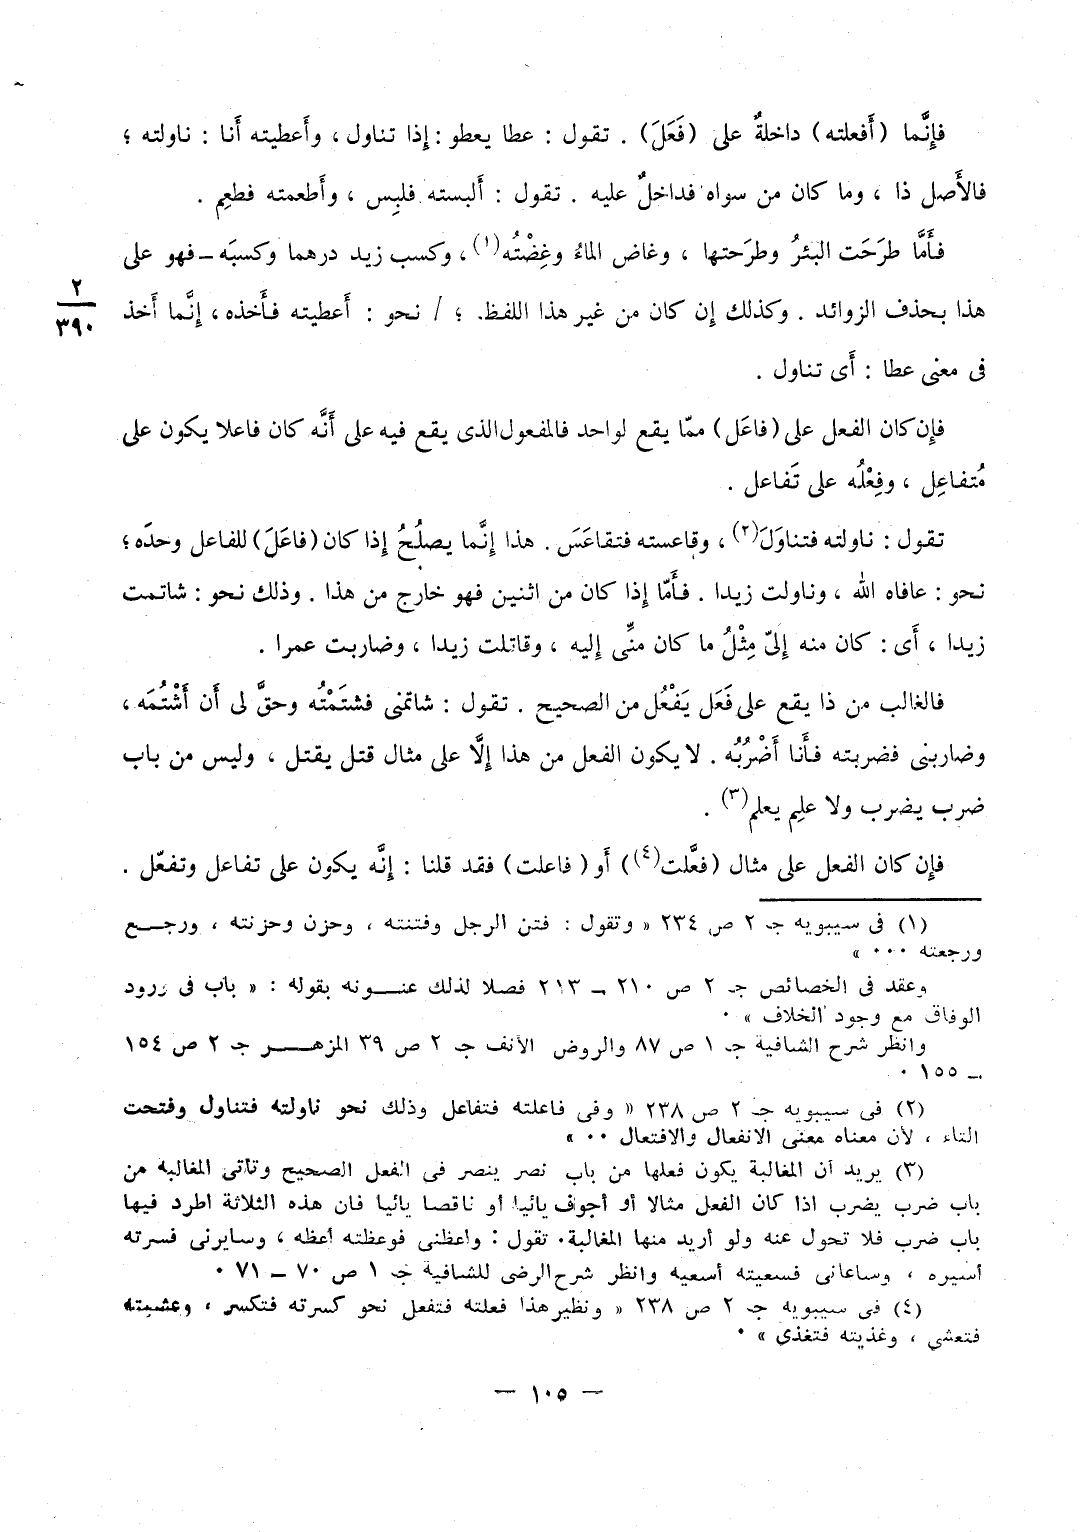 فإنَّما (أَفعلته) داخلةٌ على (فَعَلَ) . تقول : عطا يعطو : إذا تناول ، وأَعطيته أَنا : ناولته ؛
فالأَصل ذا ، وما كان من سواه فداخلٌ عليه . تقول : أَلبسته فلبِس ، وأَطعمته فطعِم .
فأَمَّا طرَحَت البئرُ وطرَحتها ، وغاض الماءُ وغِضْتُه(١) ، وكسب زيد درهما وكسبَه – فهو على
هذا بحذف الزوائد . وكذلك إن كان من غير هذا اللفظ ؛ / نحو : أَعطيته فأَخذه ، إنَّما أَخذ
٢
٣٩٠
فى معنى عطا : أَى تناول .
فإن كان الفعل على (فاعَل) ممّا يقع لواحد فالمفعول الذى يقع فيه على أَنَّه كان فاعلا يكون على
مُتفاعِل ، وفِعْلُه على تَفاعل .
تقول : ناولته فتناوَلَ(٢) ، وقاعسته فتقاعَسَ . هذا إنَّما يصلُحُ إذا كان (فاعَلَ) للفاعل وحدَه ؛
نحو : عافاه الله ، وناولت زيدا . فأَمّا إذا كان من اثنين فهو خارج من هذا . وذلك نحو : شاتمت
زيدا ، أَى : كان منه إلىّ مِثْلُ ما كان منِّى إليه ، وقاتلت زيدا ، وضاربت عمرا .
فالغالب من ذا يقع على فَعَل يَفْعُل من الصحيح . تقول : شاتمنى فشتَمْتُه وحقَّ لى أَن أَشْتُمَه ،
وضاربنى فضربته فأَنا أَضْرُبُه . لا يكون الفعل من هذا إلَّا على مثال قتل يقتل ، وليس من باب
ضرب يضرب ولا علِم يعلم(٣) .
فإن كان الفعل على مثال (فعَّلت(٤)) أَو( فاعلت) فقد قلنا : إنَّه يكون على تفاعل وتفعّل .
(١) فى سيبويه جـ ٢ ص ٢٣٤ « وتقول : فتن الرجل وفتنته ، وحزن وحزنته ، ورجـــع
ورجعته ٠٠٠ »
وعقد فى الخصائص جـ ٢ ص ٢١٠ ــ ٢١٣ فصلا لذلك عنـــونه بقوله : « باب فى ورود
الوفاق مع وجود الخلاف » ٠
وانظر شرح الشافية جـ ١ ص ٨٧ والروض الأنف جـ ٢ ص ٣٩ المزهـــر جـ ٢ ص ١٥٤
ــ ١٥٥ ٠
(٢) فى سيبويه جـ ٢ ص ٢٣٨ « وفى فاعلته فتفاعل وذلك نحو ناولته فتناول وفتحت
التاء ، لأن معناه معنى الانفعال والافتعال ٠٠ »
(٣) يريد أن المغالبة يكون فعلها من باب نصر ينصر فى الفعل الصحيح وتأتى المغالبة من
باب ضرب يضرب اذا كان الفعل مثالا أو أجوف يائيا أو ناقصا يائيا فان هذه الثلاثة اطرد فيها
باب ضرب فلا تحول عنه ولو أريد منها المغالبة٠ تقول : واعظنى فوعظته أعظه ، وسايرنى فسرته
أسيره ، وساعانى فسعيته أسعيه وانظر شرح الرضى للشافية جـ ١ ص ٧٠ ــ ٧١ ٠
(٤) فى سيبويه جـ ٢ ص ٢٣٨ « ونظير هذا فعلته فتفعل نحو كسرته فتكسر ، وعشيته
فتعشى ، وغذيته فتغذى » ٠
— ١٠٥ —